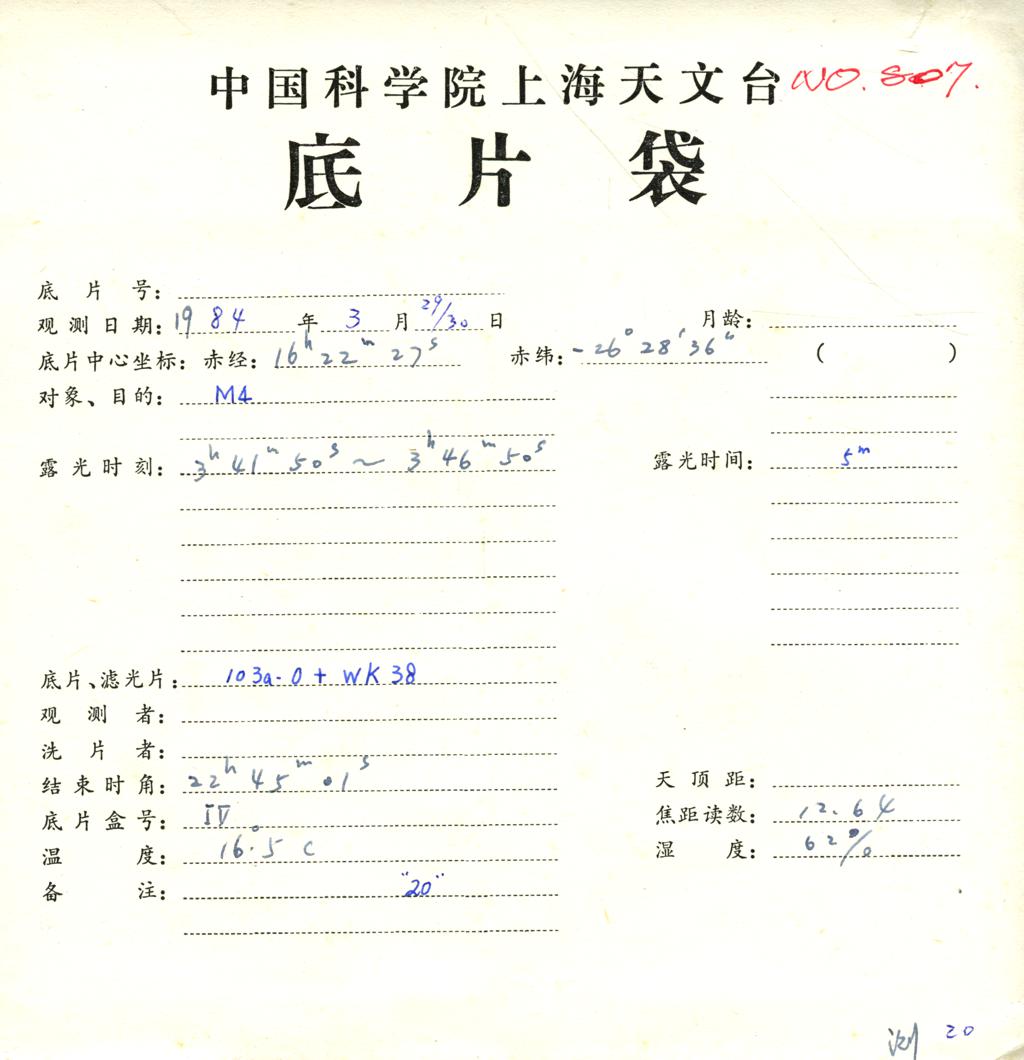 中国科学院上海天文台 NO. 807.
底片袋
底片号：
观测日期：1984年3月29/30日 月龄：
底片中心坐标：赤经：16h22m27s 赤纬：-26°28′36″ （ ）
对象、目的：M4
露光时刻：3h41m50s～3h46m50s 露光时间：5m
底片、滤光片：103a-O + WK38
观测者：
洗片者：
结束时角：22h45m01s 天顶距：
底片盒号：IV 焦距读数：12.64
温度：16°.5 C 湿度：62%
备注："20"
测 20